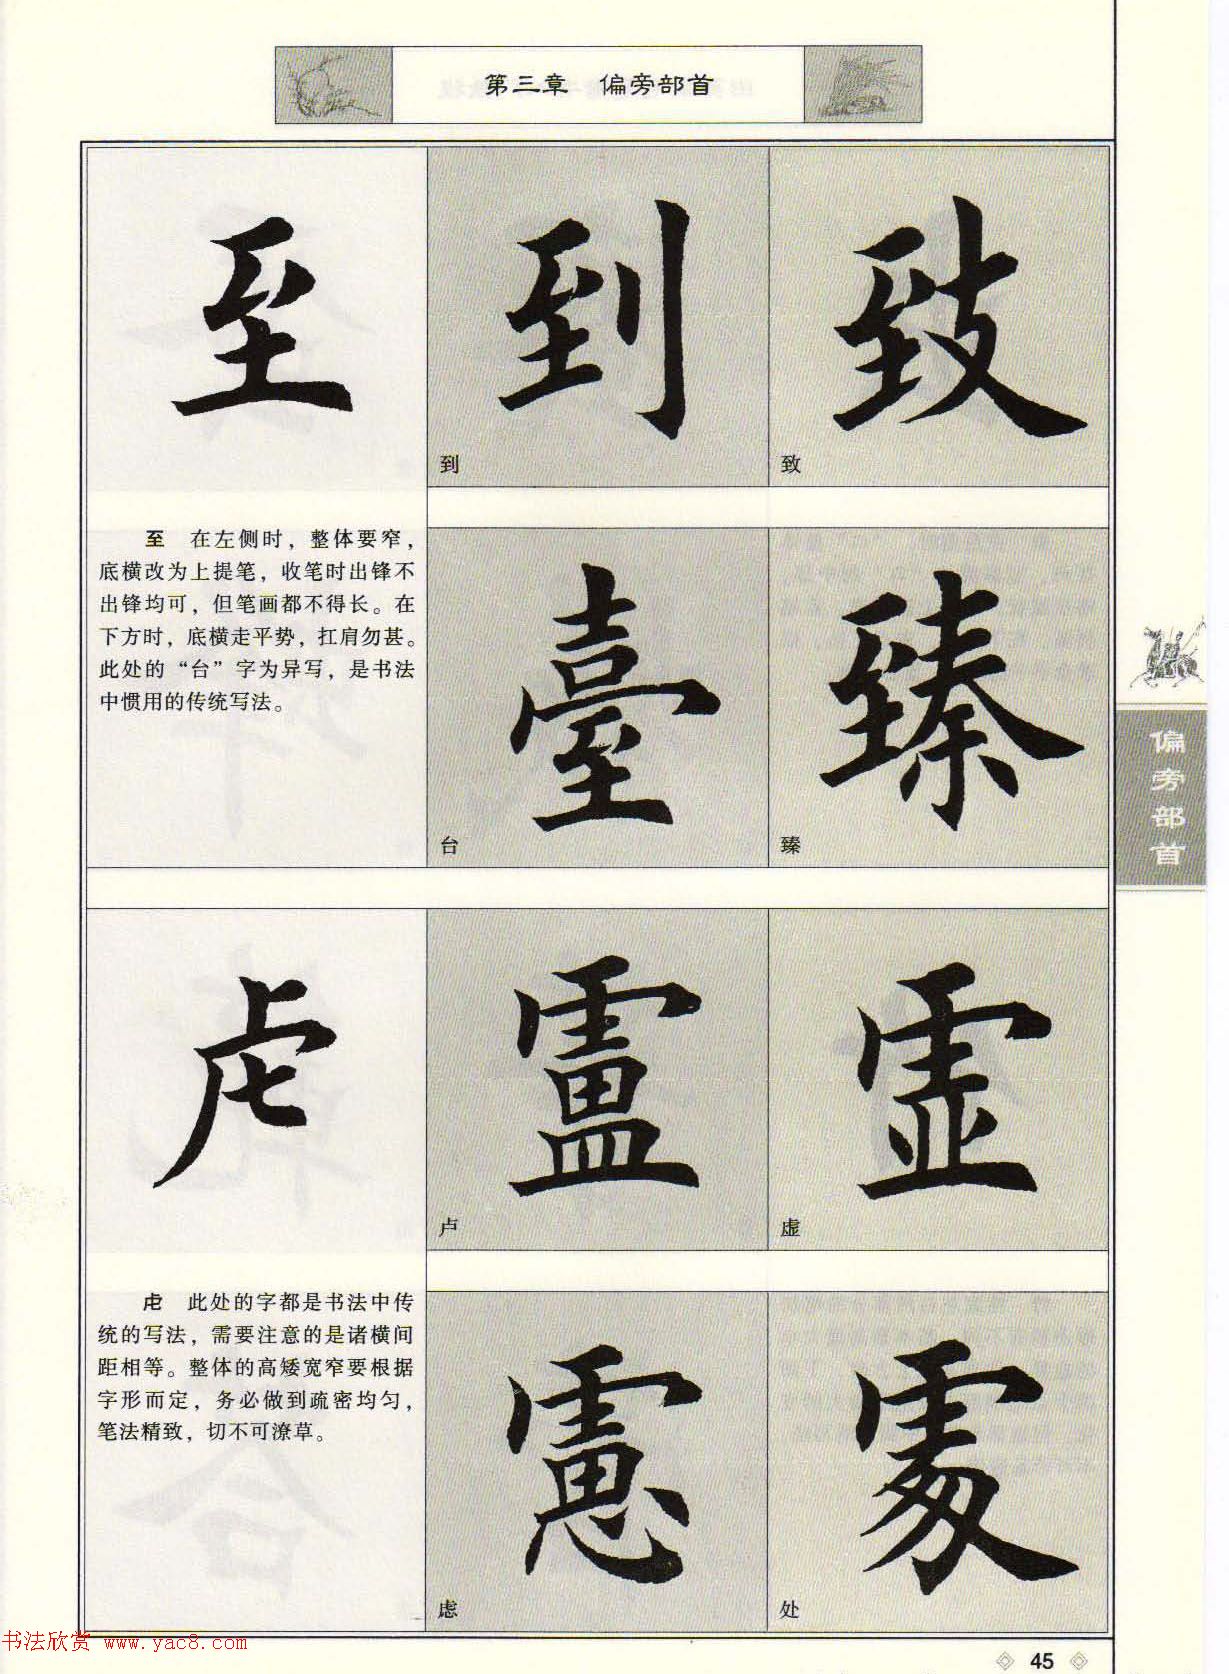 第三章 偏旁部首
至
到
到
致
致
至 在左侧时，整体要窄，
底横改为上提笔，收笔时出锋不
出锋均可，但笔画都不得长。在
下方时，底横走平势，扛肩勿甚。
此处的“台”字为异写，是书法
中惯用的传统写法。
臺
台
臻
臻
虍
盧
卢
虚
虚
虍 此处的字都是书法中传
统的写法，需要注意的是诸横间
距相等。整体的高矮宽窄要根据
字形而定，务必做到疏密均匀，
笔法精致，切不可潦草。
慮
虑
處
处
偏旁部首
书法欣赏 www.yac8.com
45